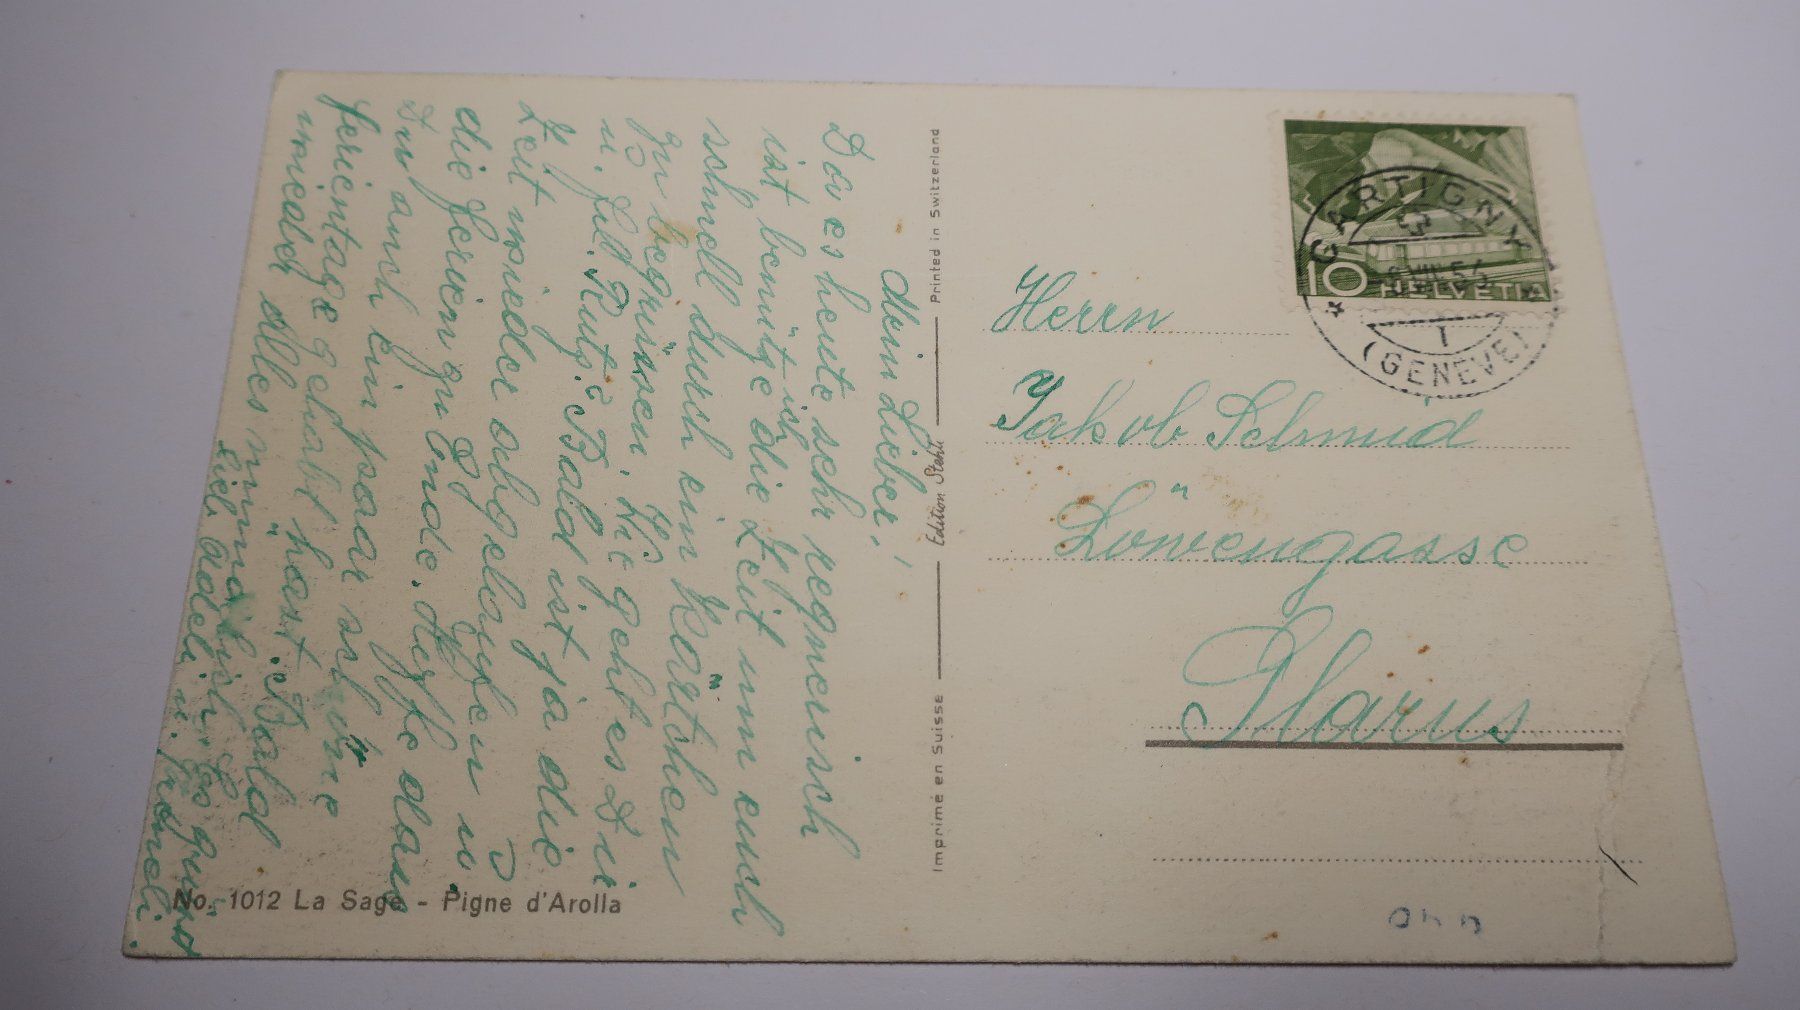 Mein Lieber!
Da es heute sehr regnerisch
ist benütze ich die Zeit um euch
schnell durch ein Kärtchen
zu begrüssen. Wie geht es Dir
u. Bald ist ja die
Zeit wieder abgelaufen u
die Ferien zu Ende. Hoffe dass
Du auch ein paar schöne
Ferientage gehabt hast. Bald
wieder alles mündlich. Es grüsst
Lieb Adeli u.
Imprimé en Suisse
Edition Stehli
Printed in Switzerland
No. 1012 La Sage - Pigne d'Arolla
CARTIGNY
VIII.54
1
(GENÈVE)
10
HELVETIA
Herrn
Jakob Schmid
Löwengasse
Glarus